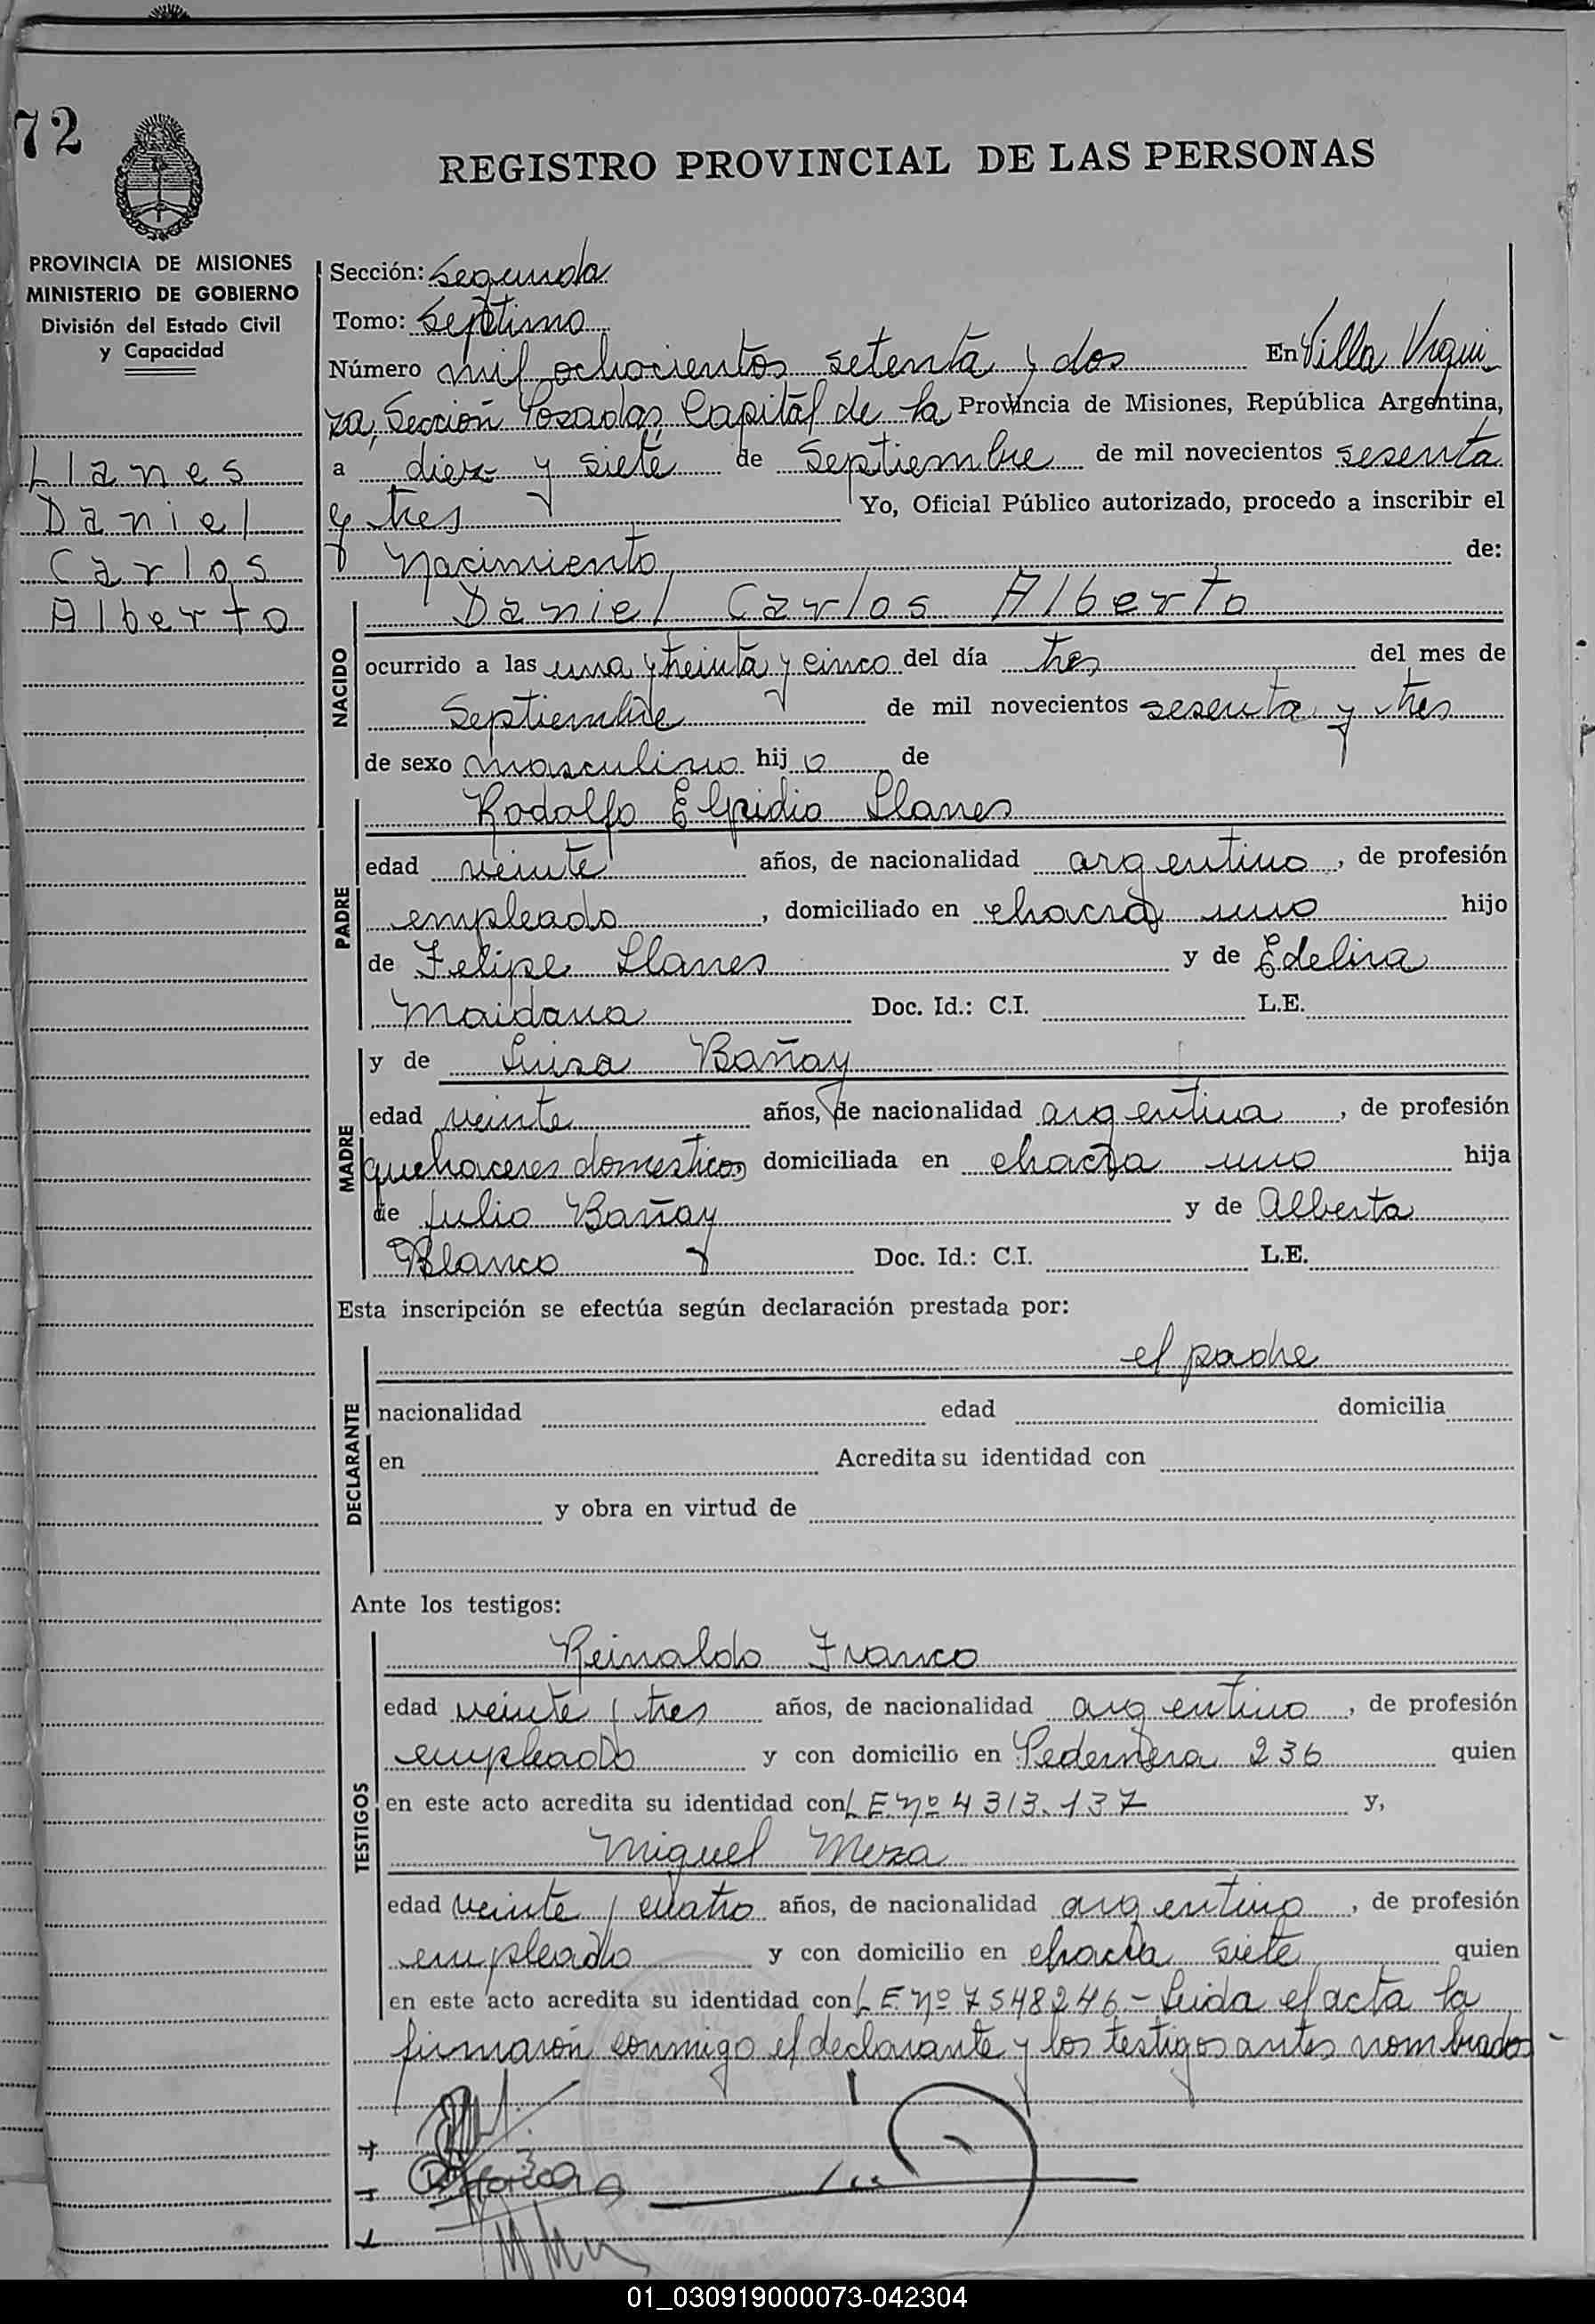 72
REGISTRO PROVINCIAL DE LAS PERSONAS
PROVINCIA DE MISIONES
MINISTERIO DE GOBIERNO
División del Estado Civil
y Capacidad
Llanes
Daniel
Carlos
Alberto
Sección: Segunda
Tomo: Septimo
Número mil ochocientos setenta y dos En Villa Urqui
za, Sección Posadas, Capital de la Provincia de Misiones, República Argentina,
a diez y siete de Septiembre de mil novecientos sesenta
y tres Yo, Oficial Público autorizado, procedo a inscribir el
Nacimiento de:
NACIDO
Daniel Carlos Alberto
ocurrido a las una y treinta y cinco del día tres del mes de
Septiembre de mil novecientos sesenta y tres
de sexo masculino hijo de
PADRE
Rodolfo Elpidio Llanes
edad veinte años, de nacionalidad argentino, de profesión
empleado, domiciliado en chacra uno hijo
de Felipe Llanes y de Edelira
Maidana Doc. Id.: C.I. L.E.
MADRE
y de Luisa Bañay
edad veinte años, de nacionalidad argentina, de profesión
quehaceres domesticos domiciliada en chacra uno hija
de Julio Bañay y de Alberta
Blanco Doc. Id.: C.I. L.E.
Esta inscripción se efectúa según declaración prestada por:
DECLARANTE
el padre
nacionalidad edad domicilia
en Acredita su identidad con
y obra en virtud de
Ante los testigos:
TESTIGOS
Reinaldo Franco
edad veinte y tres años, de nacionalidad argentino, de profesión
empleado y con domicilio en Pedernera 236 quien
en este acto acredita su identidad con L E Nº 4313.137 y,
Miguel Meza
edad veinte y cuatro años, de nacionalidad argentino, de profesión
empleado y con domicilio en chacra siete quien
en este acto acredita su identidad con L E Nº 7548246 - Leida el acta la
firmarón conmigo el declarante y los testigos antes nombrados -
01_030919000073-042304